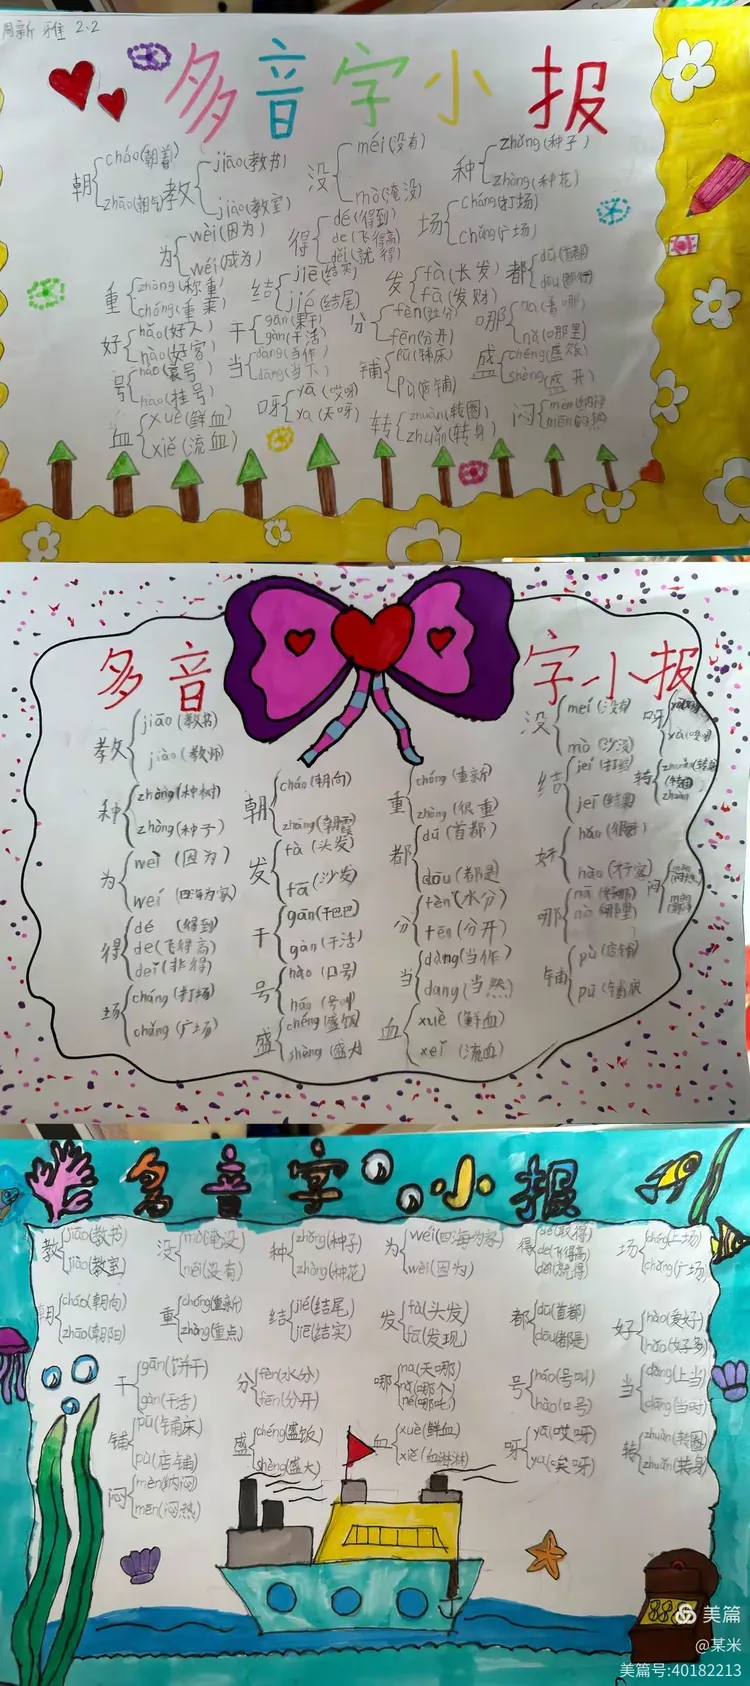 周新雅 2.2
多音字小报
朝 cháo(朝着) zhāo(朝气)
教 jiāo(教书) jiào(教室)
没 méi(没有) mò(淹没)
种 zhǒng(种子) zhòng(种花)
为 wèi(因为) wéi(成为)
得 dé(得到) de(飞得高) děi(就得)
场 cháng(打场) chǎng(广场)
重 zhòng(称重) chóng(重素)
结 jiē(结实) jié(结尾)
发 fà(长发) fā(发财)
都 dū(首都) dōu
好 hǎo(好人) hào(好客)
干 gān(果干) gàn(干活)
分 fèn fēn(分开)
哪 na nǎ(哪里)
号 háo(哀号) hào(挂号)
当 dàng(当作) dāng(当下)
铺 pū(铺床) pù(店铺)
盛 chéng(盛饭) shèng(盛开)
血 xuè(鲜血) xiě(流血)
呀 yā(哎呀) ya(天呀)
转 zhuàn(转圈) zhuǎn(转身)
闷 mèn(纳闷) mēn
多音字小报
教 jiāo(教书) jiào(教师)
种 zhòng(种树) zhǒng(种子)
为 wèi(因为) wéi(四海为家)
得 dé(得到) de(飞得高) děi(非得)
场 cháng(打场) chǎng(广场)
朝 cháo(朝向) zhāo(朝霞)
发 fà(头发) fā(沙发)
干 gān(干巴巴) gàn(干活)
号 hào(口号) háo(号叫)
盛 chéng(盛饭) shèng(盛大)
重 chóng(重新) zhòng(很重)
都 dū(首都) dōu(都是)
分 fèn(水分) fēn(分开)
当 dàng(当作) dang(当然)
血 xuè(鲜血) xei(流血)
没 mei(没有) mò(沙没)
结 jei(打结) jeī(结果)
好 hǎo(很好) hào
哪 nǎ(哪里)
铺 pù(店铺) pū(铺床)
呀 ya(哎呀)
转 zhuǎn(转身) (转圈) zhuàn
闷 mēn(闷热) mèn
多音字小报
教 jiāo(教书) jiào(教室)
没 mò(淹没) méi(没有)
种 zhǒng(种子) zhòng(种花)
为 wéi(四海为家) wèi(因为)
得 dé(取得) de(飞得高) děi(就得)
场 cháng(上场) chǎng(广场)
朝 cháo(朝向) zhāo(朝阳)
重 chóng(重新) zhòng(重点)
结 jié(结尾) jiē(结实)
发 fà(头发) fā(发现)
都 dū(首都) dōu(都是)
好 hào(爱好) hǎo(好多)
干 gān(饼干) gàn(干活)
分 fèn(水分) fēn(分开)
哪 na(天哪) nǎ(哪个) né(哪吒)
号 háo(号叫) hào(口号)
当 dàng(上当) dāng(当时)
铺 pū(铺床) pù(店铺)
盛 chéng(盛饭) shèng(盛大)
血 xuè(鲜血) xiě(血淋淋)
呀 yā(哎呀) ya(唉呀)
转 zhuàn(转圈) zhuǎn(转身)
闷 mèn(纳闷) mēn(闷热)
美篇
@某米
美篇号:40182213